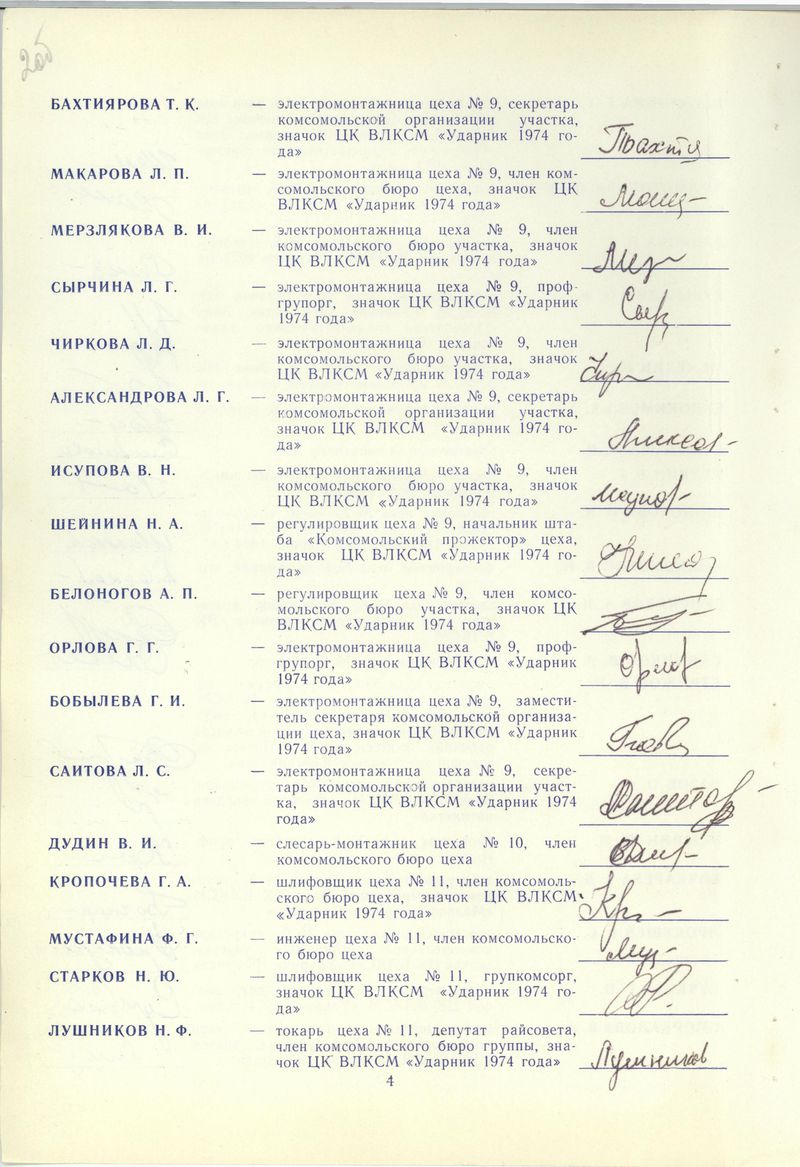 БАХТИЯРОВА Т. К. — электромонтажница цеха № 9, секретарь
комсомольской организации участка,
значок ЦК ВЛКСМ «Ударник 1974 го-
да»
МАКАРОВА Л. П. — электромонтажница цеха № 9, член ком-
сомольского бюро цеха, значок ЦК
ВЛКСМ «Ударник 1974 года»
МЕРЗЛЯКОВА В. И. — электромонтажница цеха № 9, член
комсомольского бюро участка, значок
ЦК ВЛКСМ «Ударник 1974 года»
СЫРЧИНА Л. Г. — электромонтажница цеха № 9, проф-
групорг, значок ЦК ВЛКСМ «Ударник
1974 года»
ЧИРКОВА Л. Д. — электромонтажница цеха № 9, член
комсомольского бюро участка, значок
ЦК ВЛКСМ «Ударник 1974 года»
АЛЕКСАНДРОВА Л. Г. — электромонтажница цеха № 9, секретарь
комсомольской организации участка,
значок ЦК ВЛКСМ «Ударник 1974 го-
да»
ИСУПОВА В. Н. — электромонтажница цеха № 9, член
комсомольского бюро участка, значок
ЦК ВЛКСМ «Ударник 1974 года»
ШЕЙНИНА Н. А. — регулировщик цеха № 9, начальник шта-
ба «Комсомольский прожектор» цеха,
значок ЦК ВЛКСМ «Ударник 1974 го-
да»
БЕЛОНОГОВ А. П. — регулировщик цеха № 9, член комсо-
мольского бюро участка, значок ЦК
ВЛКСМ «Ударник 1974 года»
ОРЛОВА Г. Г. — электромонтажница цеха № 9, проф-
групорг, значок ЦК ВЛКСМ «Ударник
1974 года»
БОБЫЛЕВА Г. И. — электромонтажница цеха № 9, замести-
тель секретаря комсомольской организа-
ции цеха, значок ЦК ВЛКСМ «Ударник
1974 года»
САИТОВА Л. С. — электромонтажница цеха № 9, секре-
тарь комсомольской организации участ-
ка, значок ЦК ВЛКСМ «Ударник 1974
года»
ДУДИН В. И. — слесарь-монтажник цеха № 10, член
комсомольского бюро цеха
КРОПОЧЕВА Г. А. — шлифовщик цеха № 11, член комсомоль-
ского бюро цеха, значок ЦК ВЛКСМ
«Ударник 1974 года»
МУСТАФИНА Ф. Г. — инженер цеха № 11, член комсомольско-
го бюро цеха
СТАРКОВ Н. Ю. — шлифовщик цеха № 11, групкомсорг,
значок ЦК ВЛКСМ «Ударник 1974 го-
да»
ЛУШНИКОВ Н. Ф. — токарь цеха № 11, депутат райсовета,
член комсомольского бюро группы, зна-
чок ЦК ВЛКСМ «Ударник 1974 года» Лушников
4